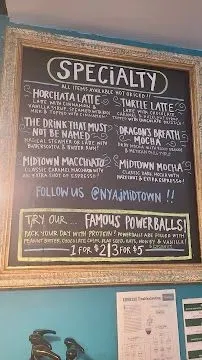 SPECIALTY
ALL ITEMS AVAILABLE HOT OR ICED!!
HORCHATA LATTE
LATTE WITH CINNAMON &
VANILLA SYRUP, STEAMED WITH RICE
MILK & TOPPED WITH CINNAMON!
TURTLE LATTE
LATTE WITH CHOCOLATE,
CARAMEL &
THE DRINK THAT MUST
NOT BE NAMED
MAGICAL STEAMER OR LATTE WITH
DARK MOCHA & BUTTER RUM!
DRAGON'S BREATH
MOCHA
DARK MOCHA WITH
MIDTOWN MACCHIATO
CLASSIC CARAMEL MACCHIATO WITH
AN EXTRA SHOT OF ESPRESSO!
MIDTOWN MOCHA
CLASSIC DARK MOCHA WITH
HAZELNUT & EXTRA ESPRESSO!
FOLLOW US @NYAJMIDTOWN !!
TRY OUR... FAMOUS POWERBALLS!
PACK YOUR DAY WITH PROTEIN! POWERBALLS ARE FILLED WITH
PEANUT BUTTER, CHOCOLATE CHIPS, FLAX SEED, OATS, HONEY & VANILLA!
1 FOR $2 | 3 FOR $5